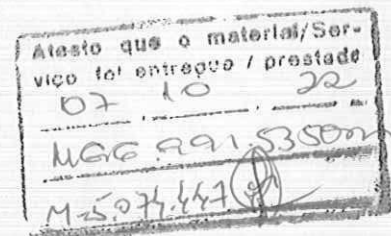 Atesto que o material/Ser-
viço foi entregue / prestado
07 10 22
M-5.074.447